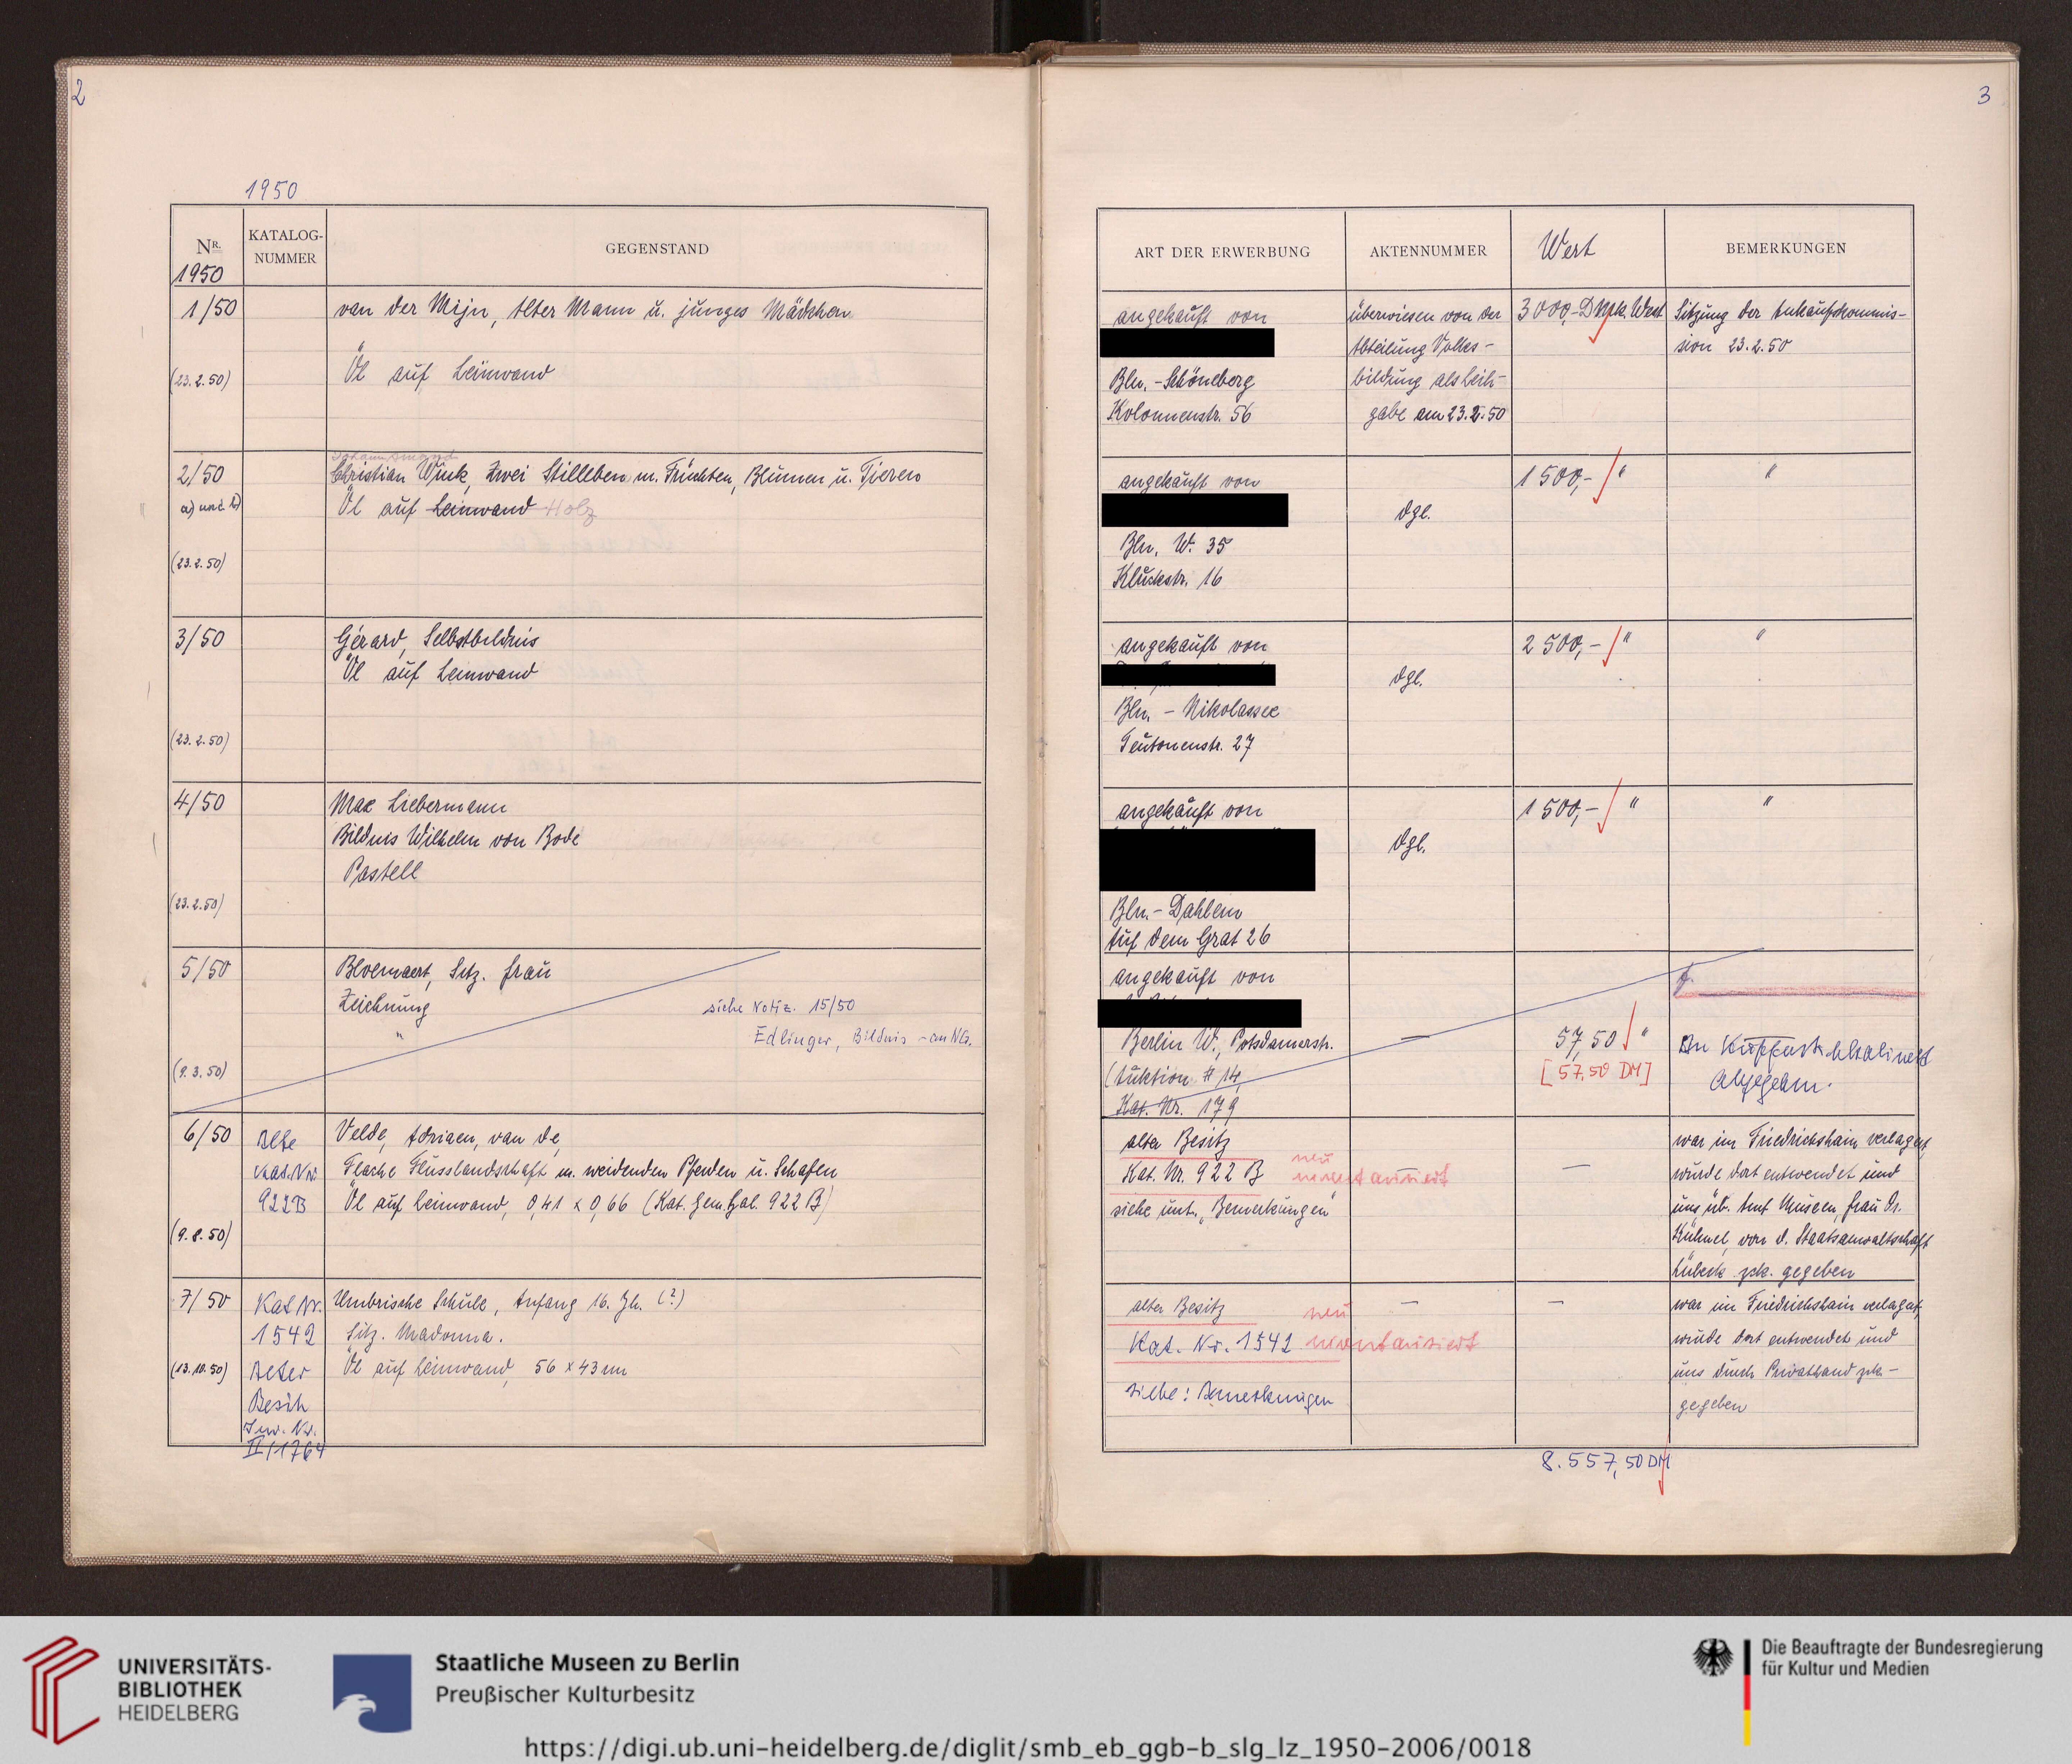 2
1950
NR. 1950
KATALOG-NUMMER
GEGENSTAND
1/50
van der Mijn, Alter Mann u. junges Mädchen
(23.2.50)
Öl auf Leinwand
2/50
Johann Amand
Christian Wink, Zwei Stilleben m. Früchten, Blumen u. Tieren
a) und b)
Öl auf Leinwand Holz
(23.2.50)
3/50
Gérard, Selbstbildnis
Öl auf Leinwand
(23.2.50)
4/50
Max Liebermann
Bildnis Wilhelm von Bode
Pastell
(23.2.50)
5/50
Bloemaert, Sitz. Frau
Zeichnung
siehe Notiz. 15/50
"
Edlinger, Bildnis - an NG.
(9.3.50)
6/50
Alte
Kat. Nr.
922B
Velde, Adriaen, van de,
Flache Flusslandschaft m. weidenden Pferden u. Schafen
Öl auf Leinwand, 0,41 x 0,66 (Kat. Gem. Gal. 922 B)
(9.8.50)
7/50
Kat Nr.
1542
Alter
Besitz
Inv. Nr.
II/1764
Umbrische Schule, Anfang 16. Jh. (?)
Sitz. Madonna.
(13.10.50)
Öl auf Leinwand, 56 x 43 cm
3
ART DER ERWERBUNG
AKTENNUMMER
Wert
BEMERKUNGEN
angekauft von
Bln.-Schöneberg
Kolonnenstr. 56
überwiesen von der
Abteilung Volks-
bildung als Leih-
gabe am 23.2.50
3000,- DMk. West
Sitzung der Ankaufskommis-
sion 23.2.50
angekauft von
Bln. W. 35
Kluckstr. 16
dgl.
1500,- "
"
angekauft von
Bln. - Nikolassee
Teutonenstr. 27
dgl.
2500,- "
"
angekauft von
Bln.- Dahlem
Auf dem Grat 26
dgl.
1500,- "
"
angekauft von
Berlin W., Potsdamerstr.
(Auktion # 14,
Kat. Nr. 179
—
57,50 "
[57,50 DM]
An Kupferstichkabinett
abgegeben.
alter Besitz
Kat. Nr. 922 B
neu
inventarisiert
siehe unt. „Bemerkungen"
—
—
war im Friedrichshain verlagert
wurde dort entwendet und
uns üb. Amt Museen, Frau Dr.
Kühnel, von d. Staatsanwaltschaft
Lübeck zck. gegeben
alter Besitz
Kat. Nr. 1542
neu
inventarisiert
siehe: Bemerkungen
—
—
war im Friedrichshain verlagert,
wurde dort entwendet und
uns durch Privathand zck-
gegeben
8.557,50 DM
UNIVERSITÄTS-
BIBLIOTHEK
HEIDELBERG
Staatliche Museen zu Berlin
Preußischer Kulturbesitz
Die Beauftragte der Bundesregierung
für Kultur und Medien
https://digi.ub.uni-heidelberg.de/diglit/smb_eb_ggb-b_slg_lz_1950-2006/0018